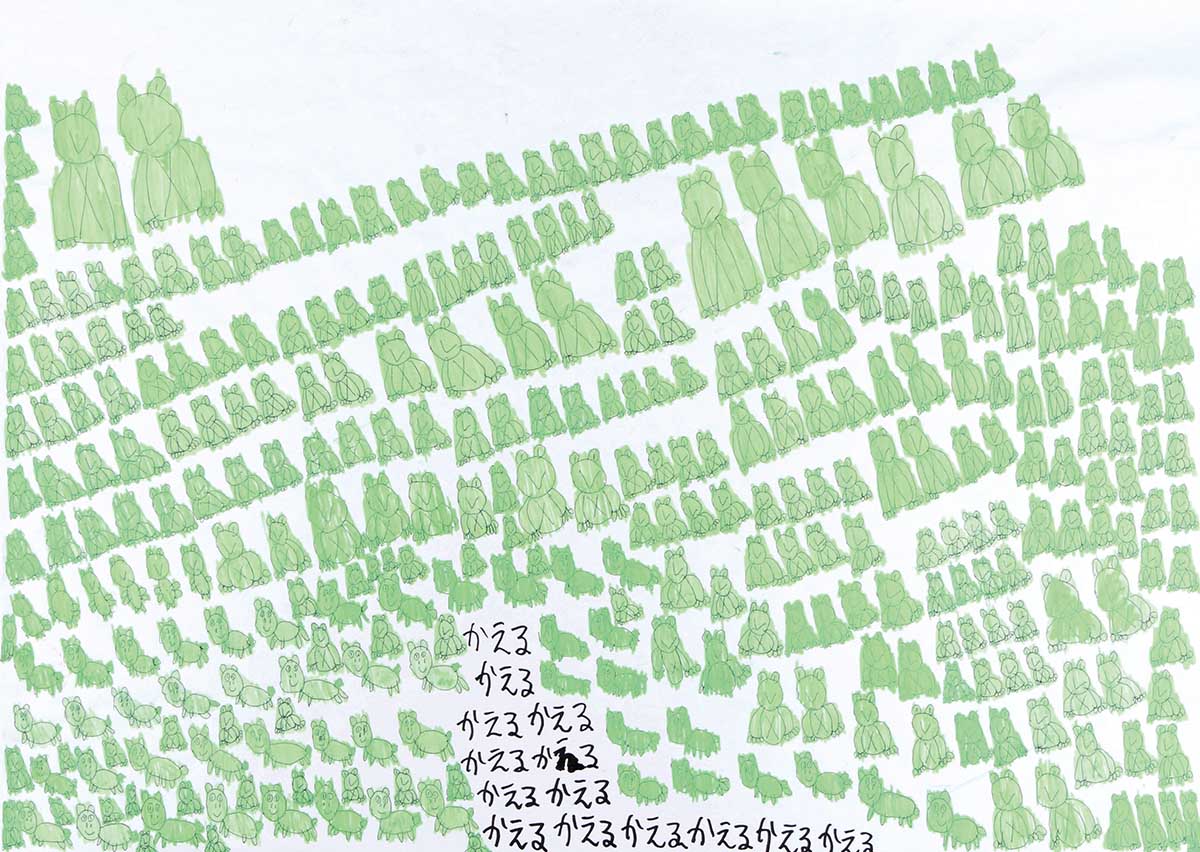 かえる
かえる
かえる かえる
かえる かえる
かえる かえる
かえる かえる かえる かえる かえる かえる